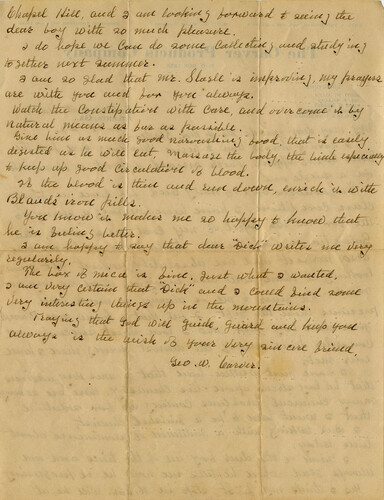 Chapel Hill, and I am looking forward to seeing the
dear boy with so much pleasure.
I do hope we can do some collecting and studying
together next summer.
I am so glad that Mr. Slagle is improving, my prayers
are with you and for you always.
Watch the Constipation with care, and overcome it by
natural means as far as possible.
Give him as much good nourishing food, that is easily
digested as he will eat. Massage the body, the limbs especially
to keep up good circulation of blood.
If the blood is thin and run down, enrich it with
Blaud's iron pills.
You know it makes me so happy to know that
he is feeling better.
I am happy to say that dear "Dick" writes me very
regularly.
The box of mica is fine. Just what I wanted.
I am very certain that "Dick" and I could find some
very interesting things up in the mountains.
Praying that God will guide, guard and keep you
always is the wish of your very sincere friend,
Geo. W. Carver.